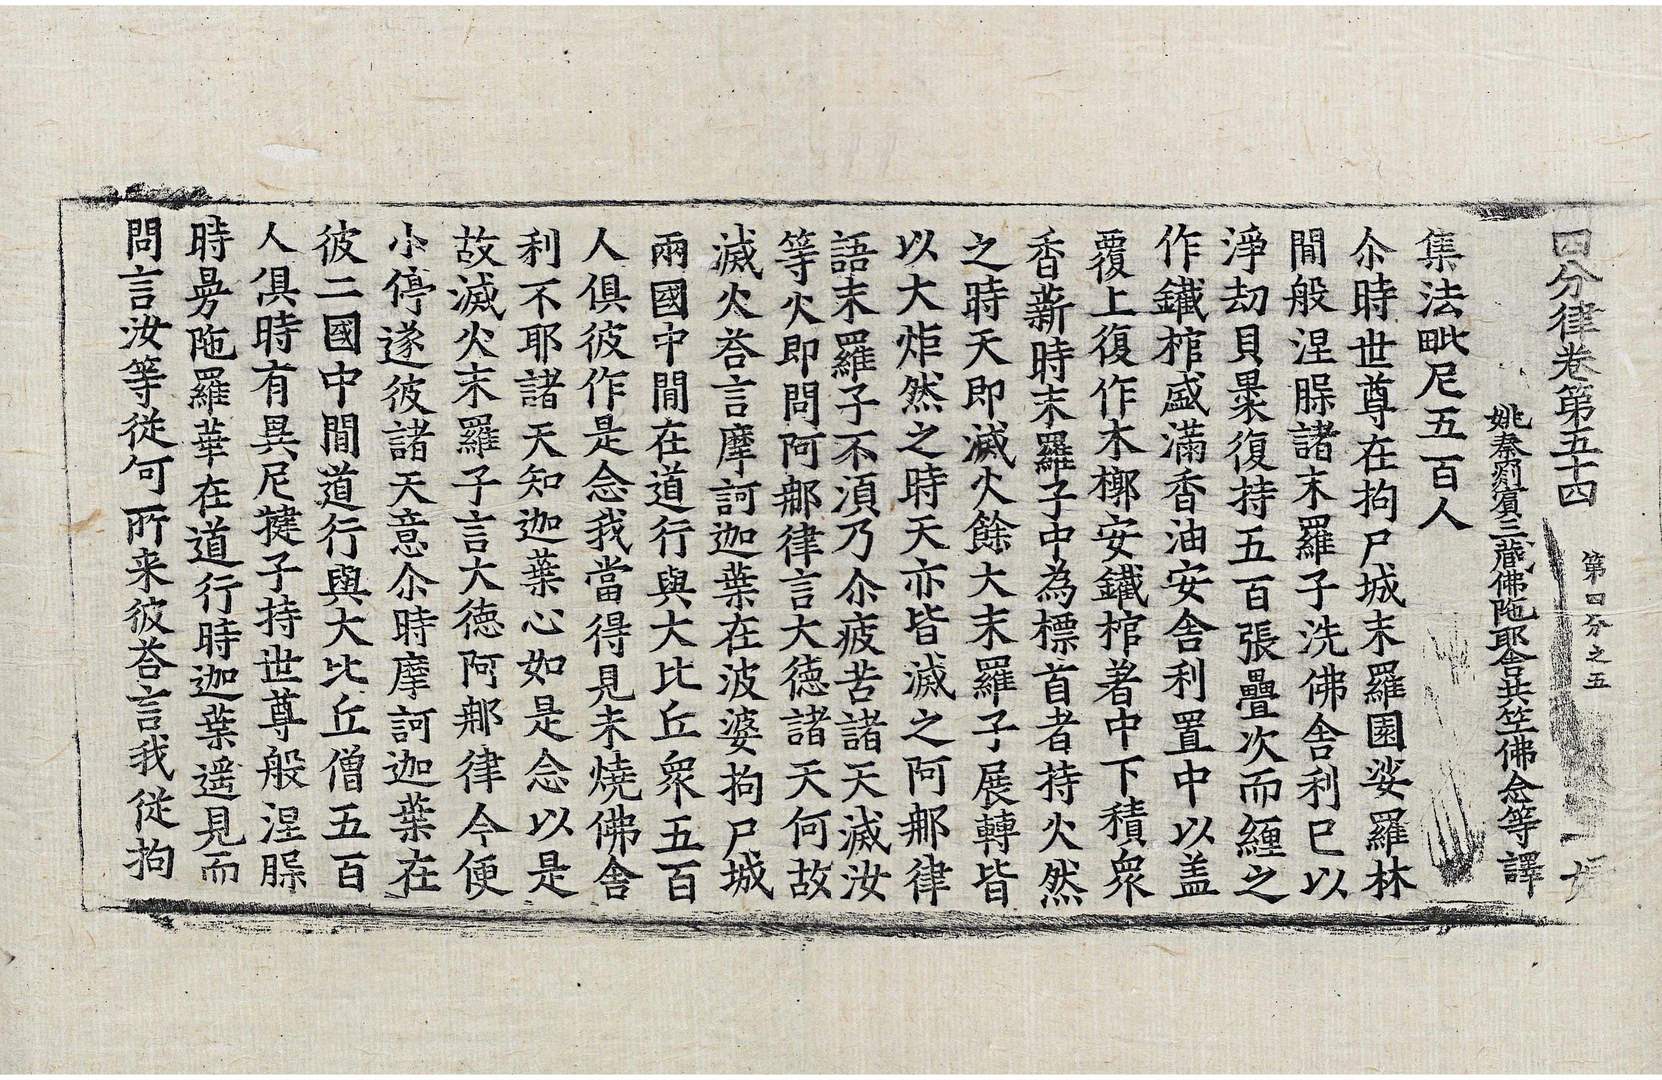 四分律卷第五十四 第四分之五
姚秦罽賓三藏佛陁耶舍共竺佛念等譯
集法毗尼五百人
尒時世尊在拘尸城末羅園娑羅林
閒般涅槃諸末羅子洗佛舍利已以
淨劫貝褁復持五百張疊次而纏之
作鐵棺盛滿香油安舍利置中以盖
覆上復作木槨安鐵棺著中下積衆
香薪時末羅子中為標首者持火然
之時天即滅火餘大末羅子展轉皆
以大炬然之時天亦皆滅之阿那律
語末羅子不湏乃尒疲苦諸天滅汝
等火即問阿那律言大德諸天何故
滅火荅言摩訶迦葉在波婆拘尸城
兩國中閒在道行與大比丘衆五百
人俱彼作是念我當得見未燒佛舍
利不耶諸天知迦葉心如是念以是
故滅火末羅子言大德阿那律今便
小停遂彼諸天意尒時摩訶迦葉在
彼二國中閒道行與大比丘僧五百
人俱時有異尼揵子持世尊般涅槃
時曼陁羅華在道行時迦葉遥見而
問言汝等從何所来彼荅言我從拘